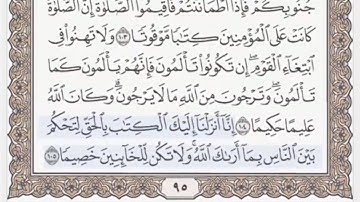 جُنُوبِكُمْ فَإِذَا ٱطْمَأْنَنتُمْ فَأَقِيمُوا۟ ٱلصَّلَوٰةَ إِنَّ ٱلصَّلَوٰةَ
كَانَتْ عَلَى ٱلْمُؤْمِنِينَ كِتَٰبًا مَّوْقُوتًا ١٠٣ وَلَا تَهِنُوا۟ فِى
ٱبْتِغَآءِ ٱلْقَوْمِ إِن تَكُونُوا۟ تَأْلَمُونَ فَإِنَّهُمْ يَأْلَمُونَ كَمَا
تَأْلَمُونَ وَتَرْجُونَ مِنَ ٱللَّهِ مَا لَا يَرْجُونَ وَكَانَ ٱللَّهُ
عَلِيمًا حَكِيمًا ١٠٤ إِنَّآ أَنزَلْنَآ إِلَيْكَ ٱلْكِتَٰبَ بِٱلْحَقِّ لِتَحْكُمَ
بَيْنَ ٱلنَّاسِ بِمَآ أَرَىٰكَ ٱللَّهُ وَلَا تَكُن لِّلْخَآئِنِينَ خَصِيمًا ١٠٥
٩٥